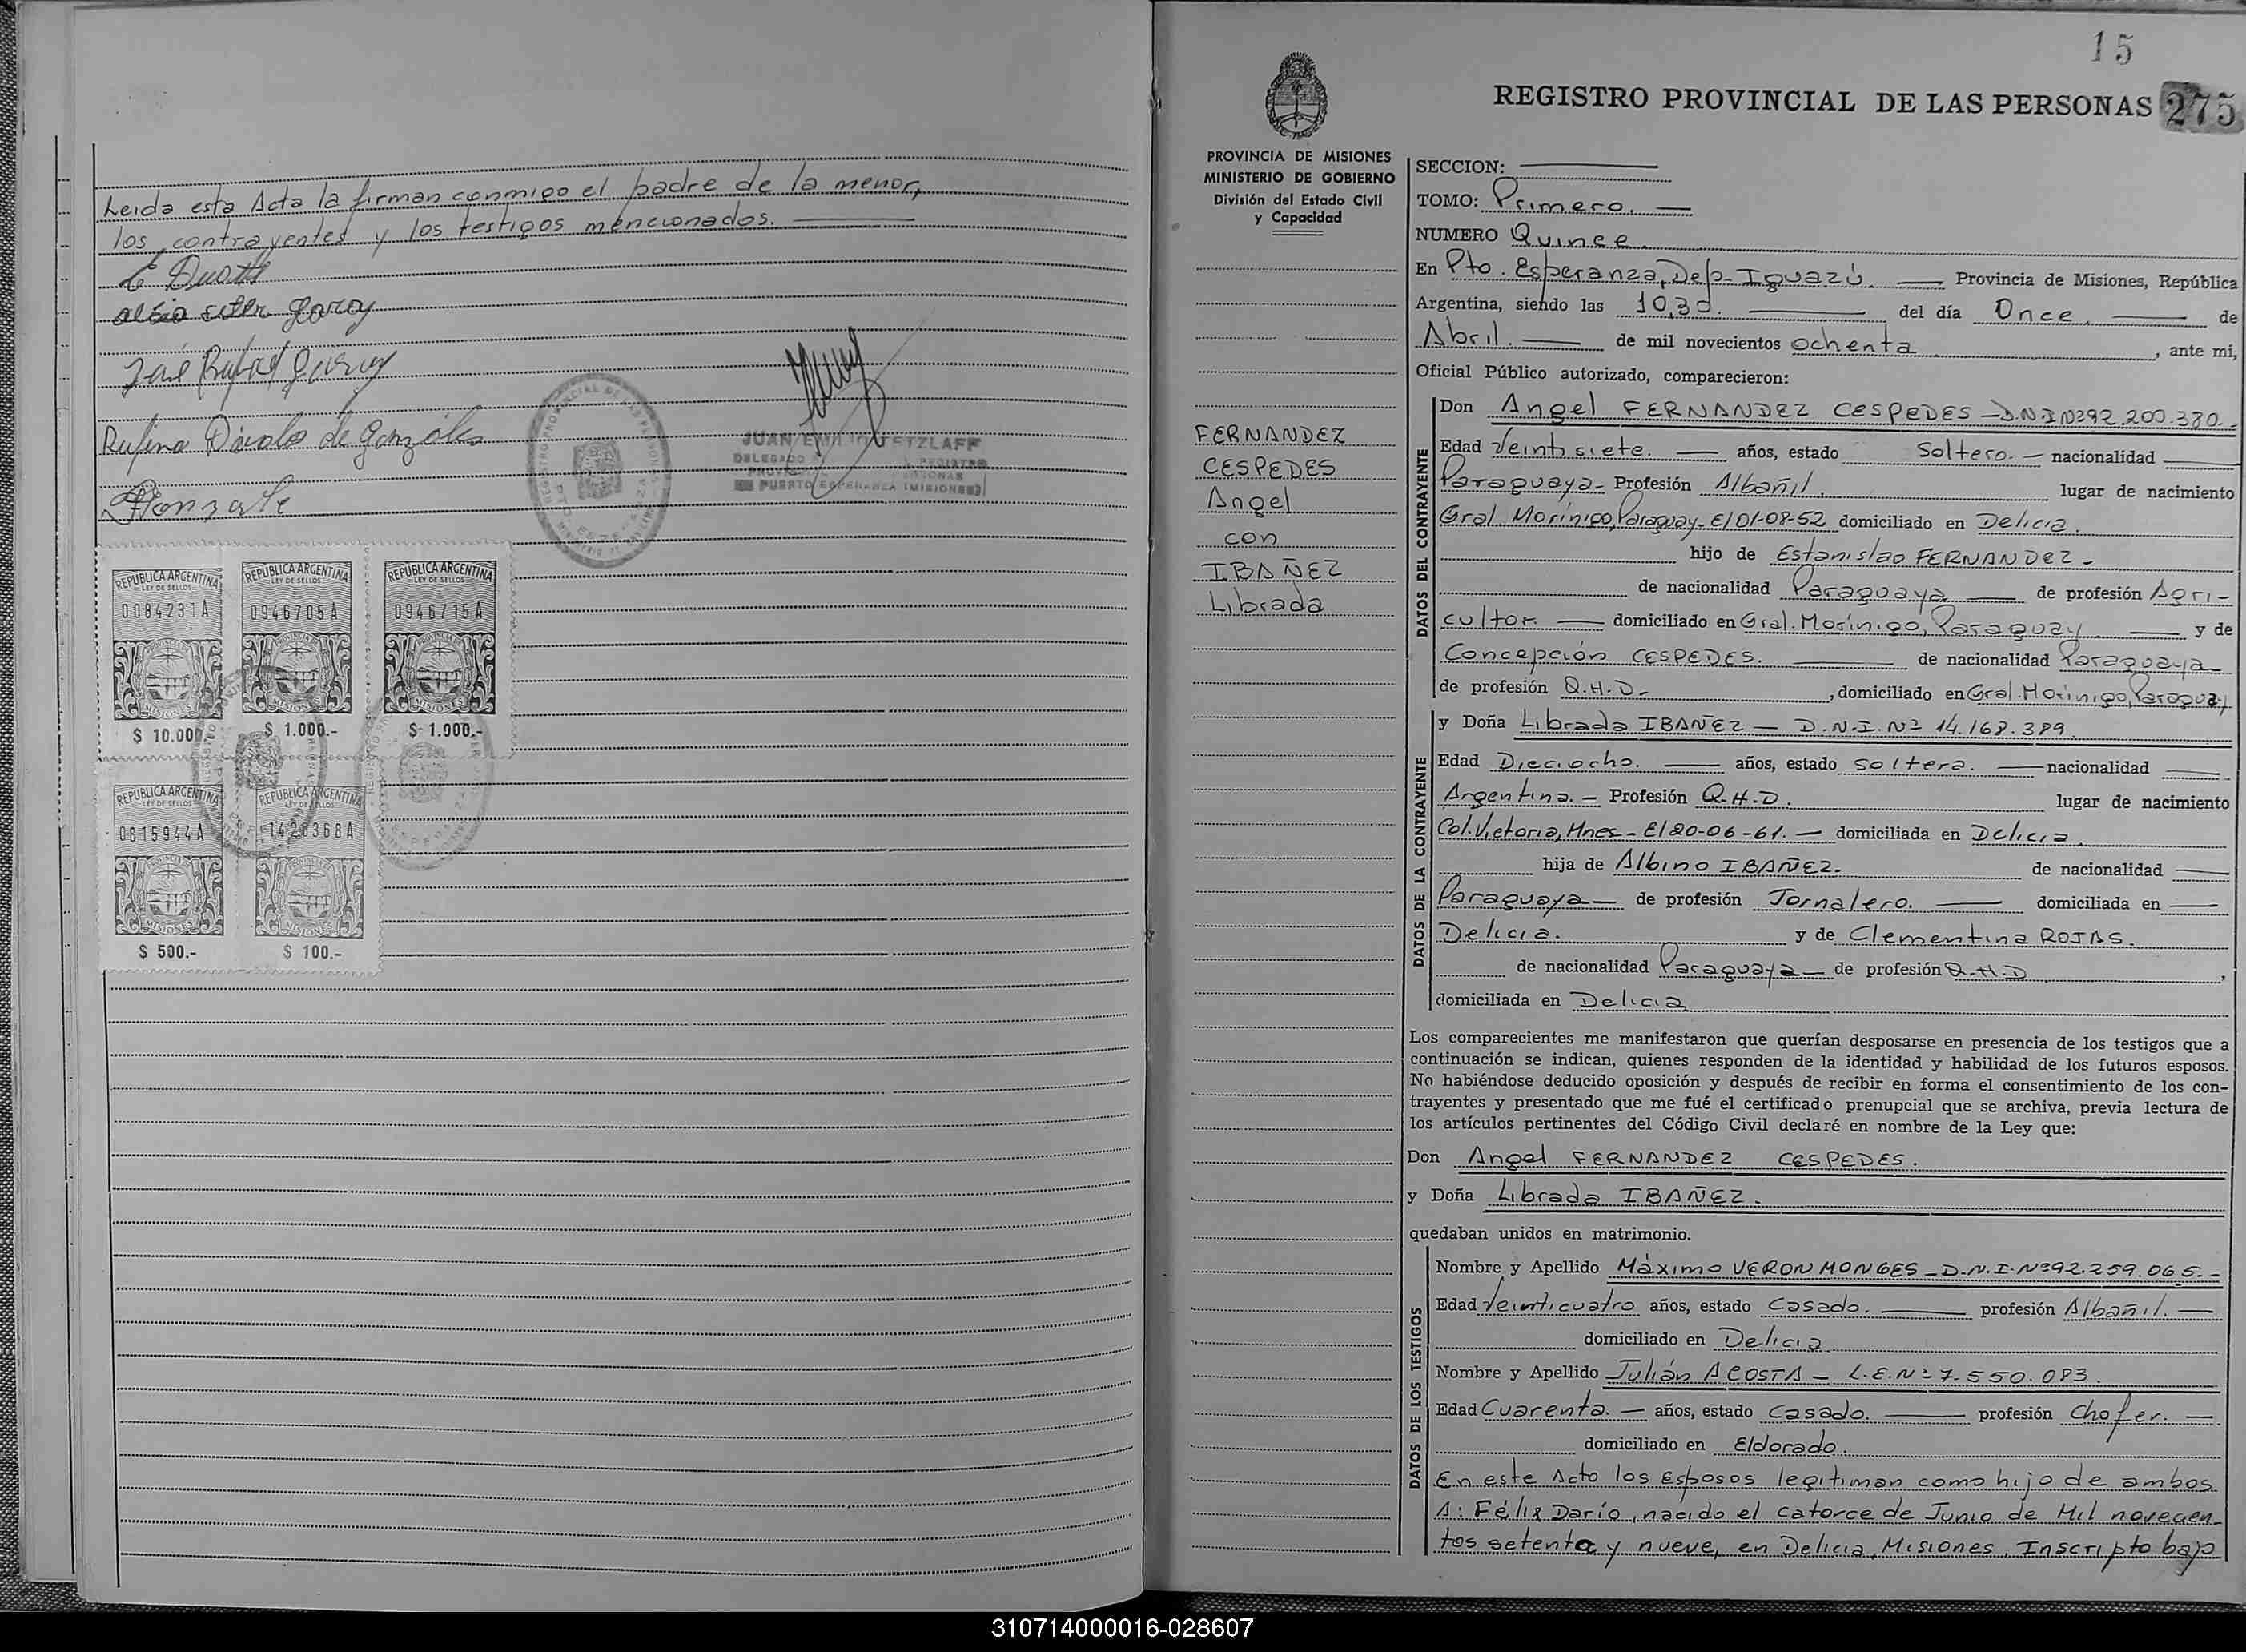 Leida esta Acta la firman conmigo el padre de la menor,
los contrayentes y los testigos mencionados.
José Rafael
Rufina Dávalos de Gonzáles
JUAN EMILIO TETZLAFF
DELEGADO
PUERTO ESPERANZA (MISIONES)
REPUBLICA ARGENTINA REPUBLICA ARGENTINA REPUBLICA ARGENTINA
LEY DE SELLOS LEY DE SELLOS LEY DE SELLOS
0084231A 0946705A 0946715A
MISIONES MISIONES MISIONES
$ 10.000 $ 1.000.- $ 1.000.-
REPUBLICA ARGENTINA REPUBLICA ARGENTINA
LEY DE SELLOS LEY DE SELLOS
0815944A 1428368A
MISIONES MISIONES
$ 500.- $ 100.-
15
REGISTRO PROVINCIAL DE LAS PERSONAS 275
PROVINCIA DE MISIONES
MINISTERIO DE GOBIERNO
División del Estado Civil
y Capacidad
FERNANDEZ
CESPEDES
Angel
con
IBAÑEZ
Librada
SECCION:
TOMO: Primero.
NUMERO Quince.
En Pto. Esperanza, Dep. Iguazú. Provincia de Misiones, República
Argentina, siendo las 10,30. del día Once. de
Abril. de mil novecientos ochenta , ante mi,
Oficial Público autorizado, comparecieron:
DATOS DEL CONTRAYENTE
Don Angel FERNANDEZ CESPEDES - D.N.I Nº 92.200.380.-
Edad Veintisiete. años, estado Soltero. - nacionalidad
Paraguaya - Profesión Albañil. lugar de nacimiento
Gral Morínigo, Paraguay - E/01-08-52 domiciliado en Delicia.
hijo de Estanislao FERNANDEZ -
de nacionalidad Paraguaya de profesión Agri-
cultor. domiciliado en Gral. Morínigo, Paraguay. y de
Concepción CESPEDES. de nacionalidad Paraguaya
de profesión Q.H.D. , domiciliado en Gral. Morínigo, Paraguay
DATOS DE LA CONTRAYENTE
y Doña Librada IBAÑEZ - D.N.I. Nº 14.168.389.
Edad Dieciocho. años, estado soltera. nacionalidad
Argentina. - Profesión Q.H.D. lugar de nacimiento
Col. Victoria, Mnes - E/20-06-61. - domiciliada en Delicia.
hija de Albino IBAÑEZ. de nacionalidad
Paraguaya - de profesión Jornalero. domiciliada en
Delicia. y de Clementina ROJAS.
de nacionalidad Paraguaya - de profesión Q.H.D ,
domiciliada en Delicia
Los comparecientes me manifestaron que querían desposarse en presencia de los testigos que a
continuación se indican, quienes responden de la identidad y habilidad de los futuros esposos.
No habiéndose deducido oposición y después de recibir en forma el consentimiento de los con-
trayentes y presentado que me fué el certificado prenupcial que se archiva, previa lectura de
los artículos pertinentes del Código Civil declaré en nombre de la Ley que:
Don Angel FERNANDEZ CESPEDES.
y Doña Librada IBAÑEZ.
quedaban unidos en matrimonio.
DATOS DE LOS TESTIGOS
Nombre y Apellido Máximo VERON MONGES - D.N.I. Nº 92.259.065.-
Edad Veinticuatro años, estado Casado. profesión Albañil.
domiciliado en Delicia
Nombre y Apellido Julián ACOSTA - L.E. Nº 7.550.083.
Edad Cuarenta. - años, estado Casado. profesión Chofer.
domiciliado en Eldorado.
En este Acto los Esposos legitiman como hijo de ambos
A: Félix Darío, nacido el catorce de Junio de Mil novecien-
tos setenta y nueve, en Delicia, Misiones, Inscripto bajo
310714000016-028607